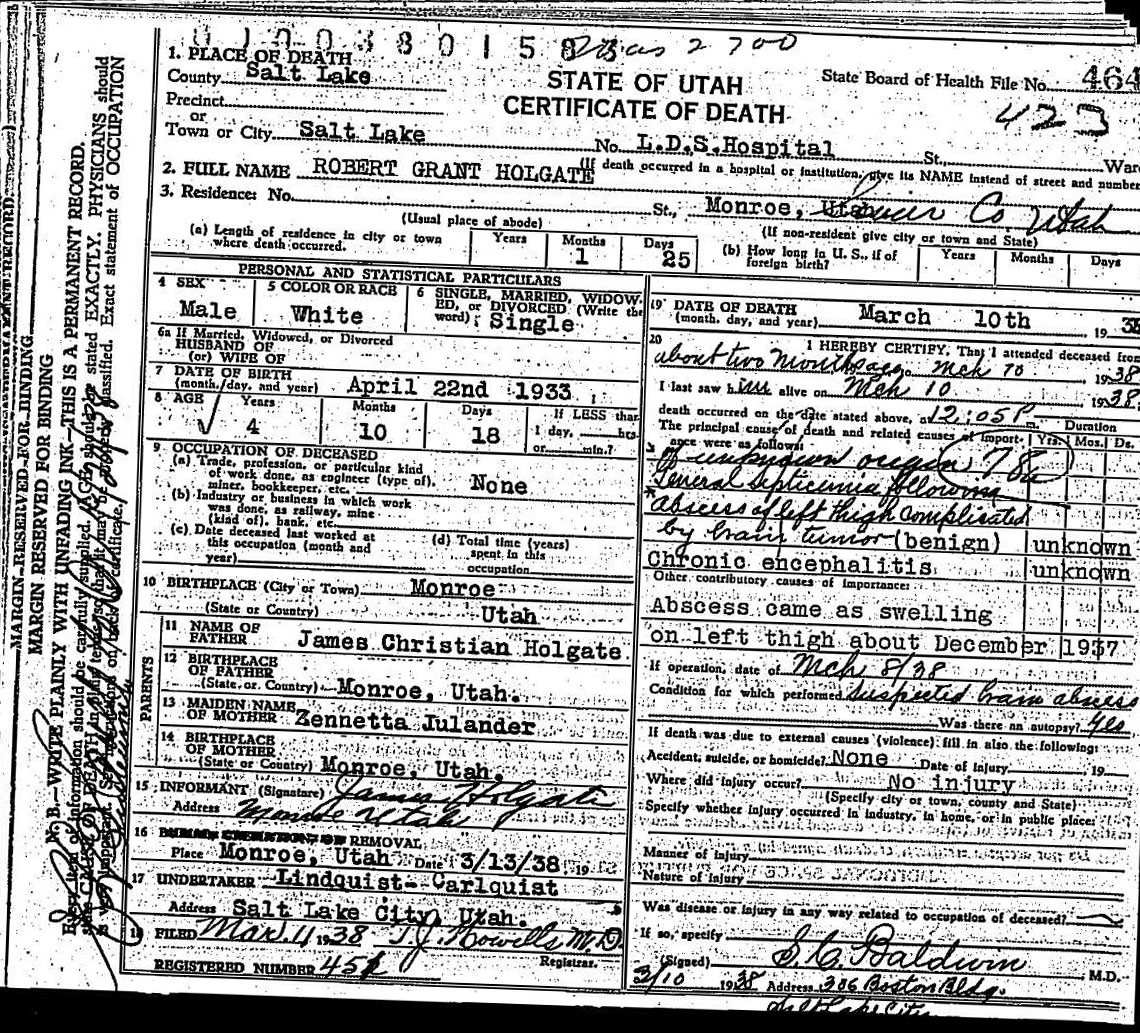 STATE OF UTAH
CERTIFICATE OF DEATH
State Board of Health File No. 464
423
1. PLACE OF DEATH
County Salt Lake
Precinct
or
Town or City Salt Lake No. L.D.S.Hospital St., Ward
(If death occurred in a hospital or institution, give its NAME instead of street and number
2. FULL NAME ROBERT GRANT HOLGATE
3. Residence: No. St., Monroe, Utah Co. Utah
(Usual place of abode) (If non-resident give city or town and State)
(a) Length of residence in city or town where death occurred. Years Months 1 Days 25
(b) How long in U. S., if of foreign birth? Years Months Days
PERSONAL AND STATISTICAL PARTICULARS
4 SEX Male
5 COLOR OR RACE White
6 SINGLE, MARRIED, WIDOWED, or DIVORCED (Write the word) Single
6a If Married, Widowed, or Divorced
HUSBAND OF
(or) WIFE OF
7 DATE OF BIRTH
(month, day, and year) April 22nd 1933
8 AGE Years 4 Months 10 Days 18 If LESS than 1 day, hrs. or min.?
9 OCCUPATION OF DECEASED
(a) Trade, profession, or particular kind of work done, as engineer (type of), miner, bookkeeper, etc. None
(b) Industry or business in which work was done, as railway, mine (kind of), bank, etc.
(c) Date deceased last worked at this occupation (month and year)
(d) Total time (years) spent in this occupation
10 BIRTHPLACE (City or Town) Monroe
(State or Country) Utah
PARENTS
11 NAME OF FATHER James Christian Holgate
12 BIRTHPLACE OF FATHER
(State or Country) Monroe, Utah.
13 MAIDEN NAME OF MOTHER Zennetta Julander
14 BIRTHPLACE OF MOTHER
(State or Country) Monroe, Utah.
15 INFORMANT (Signature) James Holgate
Address Monroe Utah
16 REMOVAL
Place Monroe, Utah Date 3/13/38, 19
17 UNDERTAKER Lindquist--Carlquist
Address Salt Lake City, Utah.
18 FILED Mar. 11 1938 T.J. Howells M.D.
Registrar.
REGISTERED NUMBER 451
19 DATE OF DEATH
(month, day, and year) March 10th 1938
20 I HEREBY CERTIFY, That I attended deceased from
about two months ago Mch 10 1938
I last saw him alive on Mch 10 1938.
death occurred on the date stated above, at 12:05 P.
The principal cause of death and related causes of importance were as follows: Duration Yrs. Mos. Ds.
of unknown origin 78a
General Septicemia following
abscess of left thigh complicated
by brain tumor (benign) unknown
Chronic encephalitis unknown
Other contributory causes of importance:
Abscess came as swelling
on left thigh about December 1937
If operation, date of Mch 8/38
Condition for which performed Suspected brain abscess
Was there an autopsy? Yes
If death was due to external causes (violence) fill in also the following:
Accident, suicide, or homicide? None Date of Injury , 19
Where did injury occur? No injury
(Specify city or town, county and State)
Specify whether injury occurred in industry, in home, or in public place:
Manner of injury
Nature of injury
Was disease or injury in any way related to occupation of deceased?
If so, specify
(Signed) S. C. Baldwin M.D.
3/10 1938 Address 306 Boston Bldg.
Salt Lake City
MARGIN RESERVED FOR BINDING
N. B.—WRITE PLAINLY WITH UNFADING INK—THIS IS A PERMANENT RECORD.